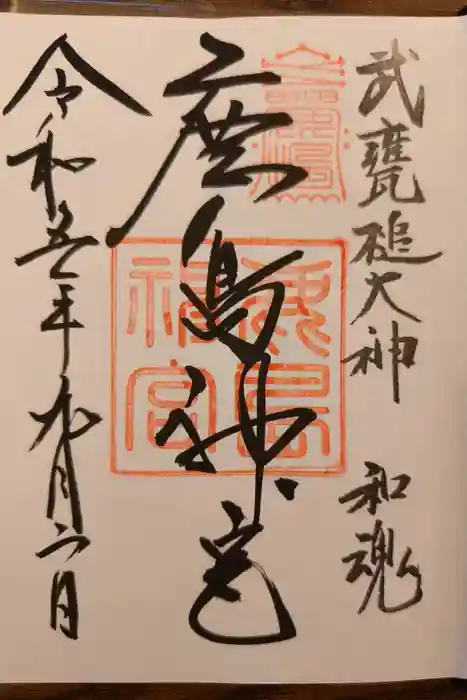 武甕槌大神 和魂
鹿島神宮
令和五年九月六日
鹿島神宮